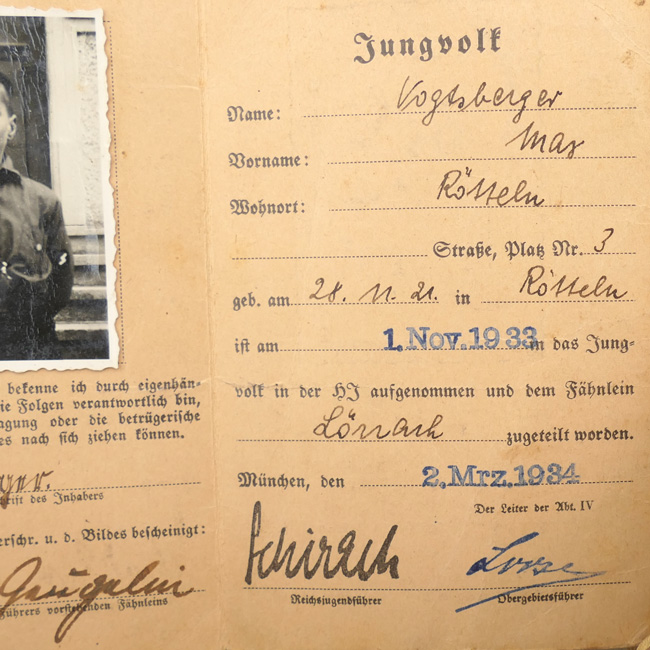 Jungvolk
Name: Vogtsberger
Vorname: Max
Wohnort: Rötteln
Straße, Platz Nr. 3
geb. am 28. 11. 21. in Rötteln
ist am 1. Nov. 1933 in das Jung-
volk in der HJ aufgenommen und dem Fähnlein
Lörrach zugeteilt worden.
München, den 2. Mrz. 1934
Der Leiter der Abt. IV
Schirach
Reichsjugendführer Obergebietsführer
bekenne ich durch eigenhän-
ie Folgen verantwortlich bin,
agung oder die betrügerische
es nach sich ziehen können.
ger.
rift des Inhabers
erschr. u. d. Bildes bescheinigt:
Gaugelin
führers vorstehenden Fähnleins